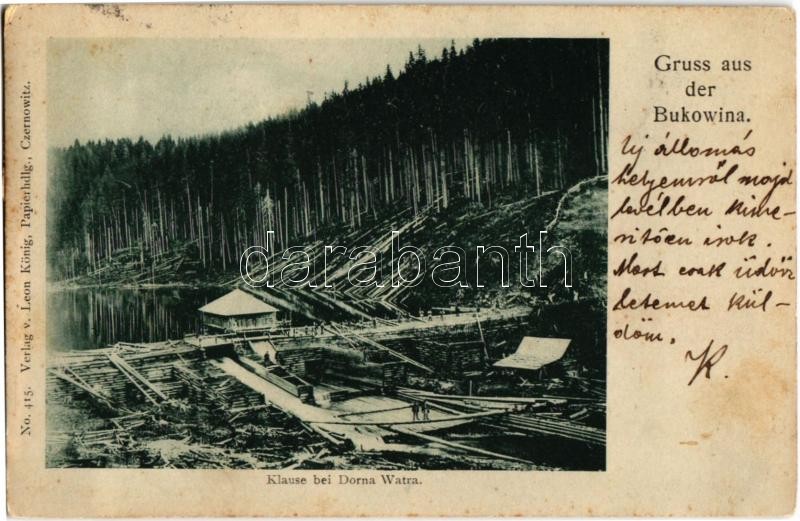 Gruss aus
der
Bukowina.
Uj állomás
helyemről majd
levélben kime-
ritően irok.
Most csak üdvöz
letemet kül-
döm.
K.
No. 415. Verlag v. Leon König, Papierhdlg., Czernowitz.
darabanth
Klause bei Dorna Watra.